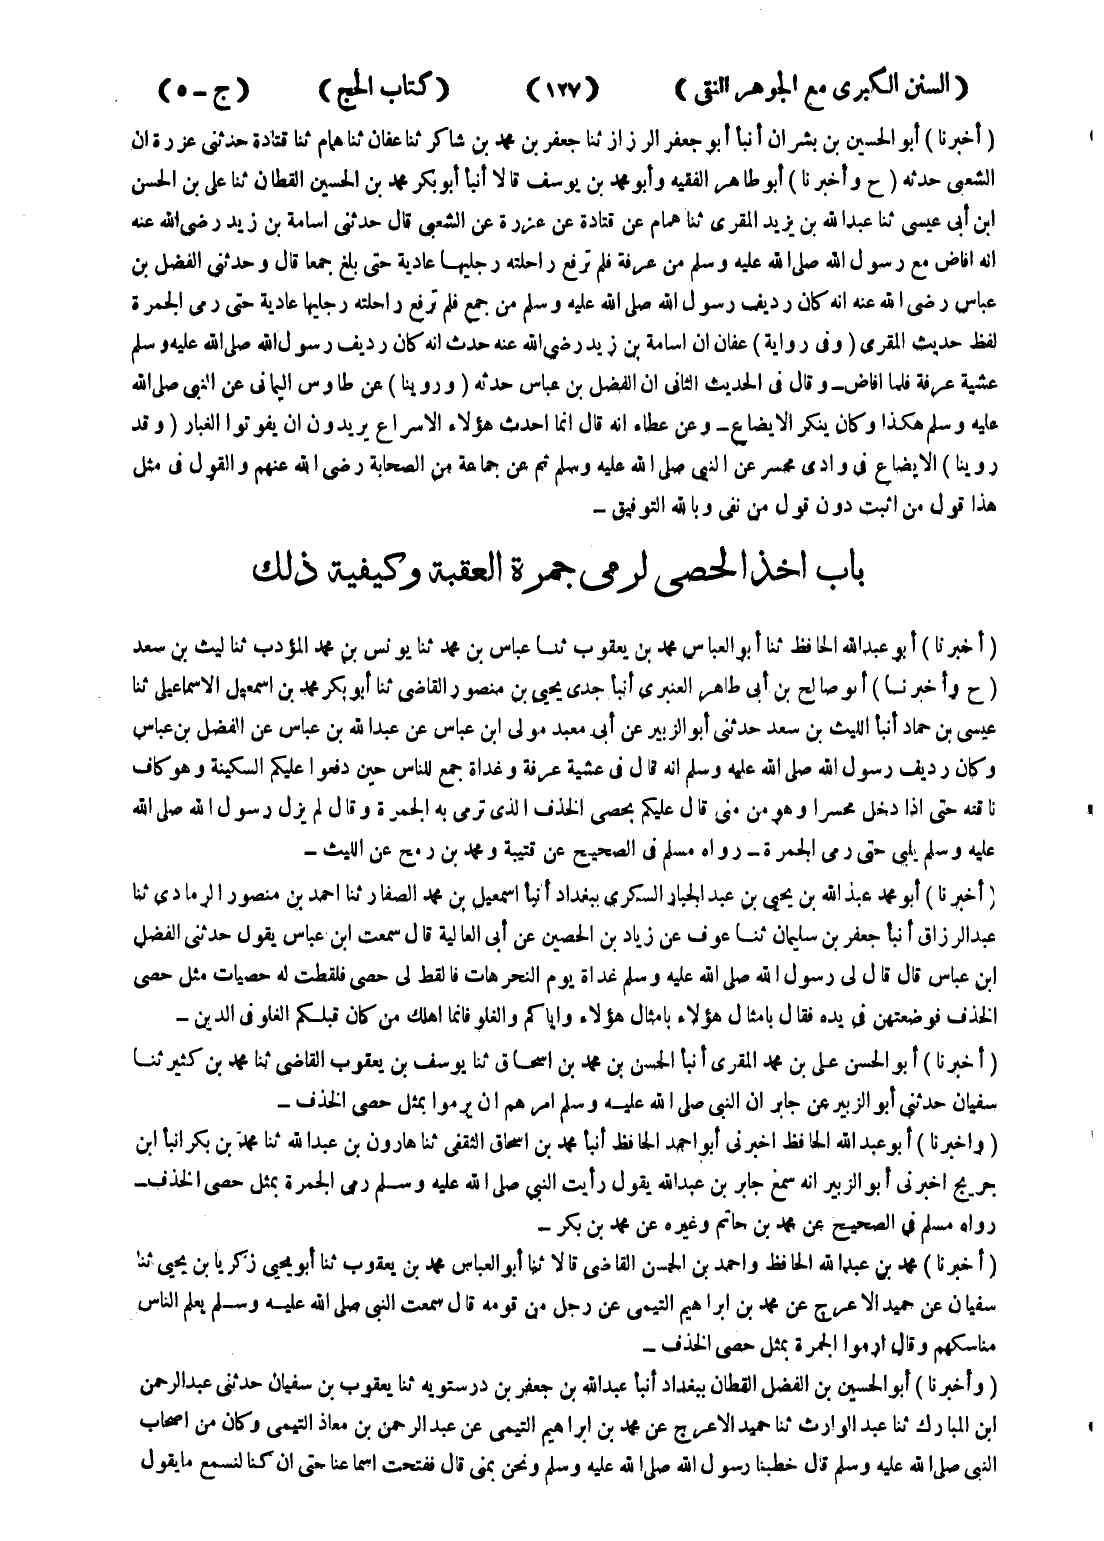 ( السنن الكبرى مع الجوهر النقى ) ( ١٢٧ ) ( كتاب الحج ) ( ج - ٥ )
( أخبرنا ) أبو الحسين بن بشران أنبأ أبو جعفر الرزاز ثنا جعفر بن محمد بن شاكر ثنا عفان ثنا همام ثنا قتادة حدثنى عزرة ان
الشعبى حدثه ( ح وأخبرنا ) أبو طاهر الفقيه وأبو محمد بن يوسف قالا أنبأ أبو بكر محمد بن الحسين القطان ثنا على بن الحسن
ابن أبى عيسى ثنا عبدالله بن يزيد المقرى ثنا همام عن قتادة عن عزرة عن الشعبى قال حدثنى اسامة بن زيد رضى الله عنه
انه افاض مع رسول الله صلى الله عليه وسلم من عرفة فلم ترفع راحلته رجليها عادية حتى بلغ جمعا قال وحدثنى الفضل بن
عباس رضى الله عنه انه كان رديف رسول الله صلى الله عليه وسلم من جمع فلم ترفع راحلته رجليها عادية حتى رمى الجمرة
لفظ حديث المقرى ( وفى رواية ) عفان ان اسامة بن زيد رضى الله عنه حدث انه كان رديف رسول الله صلى الله عليه وسلم
عشية عرفة فلما افاض - وقال فى الحديث الثانى ان الفضل بن عباس حدثه ( وروينا ) عن طاوس اليمانى عن النبى صلى الله
عليه وسلم هكذا وكان ينكر الايضاع - وعن عطاء انه قال انما احدث هؤلاء الاسراع يريدون ان يفوتوا الغبار ( وقد
روينا ) الايضاع فى وادى محسر عن النبى صلى الله عليه وسلم ثم عن جماعة من الصحابة رضى الله عنهم والقول فى مثل
هذا قول من اثبت دون قول من نفى وبالله التوفيق -
باب اخذ الحصى لرمى جمرة العقبة وكيفية ذلك
( أخبرنا ) أبو عبدالله الحافظ ثنا أبو العباس محمد بن يعقوب ثنا عباس بن محمد ثنا يونس بن محمد المؤدب ثنا ليث بن سعد
( ح وأخبرنا ) أبو صالح بن أبى طاهر العنبرى أنبأ جدى يحيى بن منصور القاضى ثنا أبو بكر محمد بن اسمعيل الاسماعيلى ثنا
عيسى بن حماد أنبأ الليث بن سعد حدثنى أبو الزبير عن أبى معبد مولى ابن عباس عن عبدالله بن عباس عن الفضل بن عباس
وكان رديف رسول الله صلى الله عليه وسلم انه قال فى عشية عرفة وغداة جمع للناس حين دفعوا عليكم السكينة وهو كاف
ناقته حتى اذا دخل محسرا وهو من منى قال عليكم بحصى الخذف الذى ترمى به الجمرة وقال لم يزل رسول الله صلى الله
عليه وسلم يلبى حتى رمى الجمرة - رواه مسلم فى الصحيح عن قتيبة ومحمد بن رمح عن الليث -
( أخبرنا ) أبو محمد عبدالله بن يحيى بن عبد الجبار السكرى ببغداد أنبأ اسمعيل بن محمد الصفار ثنا احمد بن منصور الرمادى ثنا
عبدالرزاق أنبأ جعفر بن سليمان ثنا عوف عن زياد بن الحصين عن أبى العالية قال سمعت ابن عباس يقول حدثنى الفضل
ابن عباس قال قال لى رسول الله صلى الله عليه وسلم غداة يوم النحر هات فالقط لى حصى فلقطت له حصيات مثل حصى
الخذف فوضعتهن فى يده فقال بامثال هؤلاء بامثال هؤلاء واياكم والغلو فانما اهلك من كان قبلكم الغلو فى الدين -
( أخبرنا ) أبو الحسن على بن محمد المقرى أنبأ الحسن بن محمد بن اسحاق ثنا يوسف بن يعقوب القاضى ثنا محمد بن كثير ثنا
سفيان حدثنى أبو الزبير عن جابر ان النبى صلى الله عليه وسلم امرهم ان يرموا بمثل حصى الخذف -
( واخبرنا ) أبو عبد الله الحافظ اخبرنى أبو احمد الحافظ أنبأ محمد بن اسحاق الثقفى ثنا هارون بن عبدالله ثنا محمد بن بكر انبأ ابن
جريج اخبرنى أبو الزبير انه سمع جابر بن عبدالله يقول رأيت النبى صلى الله عليه وسلم رمى الجمرة بمثل حصى الخذف -
رواه مسلم فى الصحيح عن محمد بن حاتم وغيره عن محمد بن بكر -
( أخبرنا ) محمد بن عبدالله الحافظ واحمد بن الحسن القاضى قالا ثنا أبو العباس محمد بن يعقوب ثنا أبو يحيى زكريا بن يحيى ثنا
سفيان عن حميد الاعرج عن محمد بن ابراهيم التيمى عن رجل من قومه قال سمعت النبى صلى الله عليه وسلم يعلم الناس
مناسكهم وقال ارموا الجمرة بمثل حصى الخذف -
( وأخبرنا ) أبو الحسين بن الفضل القطان ببغداد أنبأ عبدالله بن جعفر بن درستويه ثنا يعقوب بن سفيان حدثنى عبدالرحمن
ابن المبارك ثنا عبد الوارث ثنا حميد الاعرج عن محمد بن ابراهيم التيمى عن عبدالرحمن بن معاذ التيمى وكان من اصحاب
النبى صلى الله عليه وسلم قال خطبنا رسول الله صلى الله عليه وسلم ونحن بمنى قال ففتحت اسماعنا حتى ان كنا لنسمع مايقول